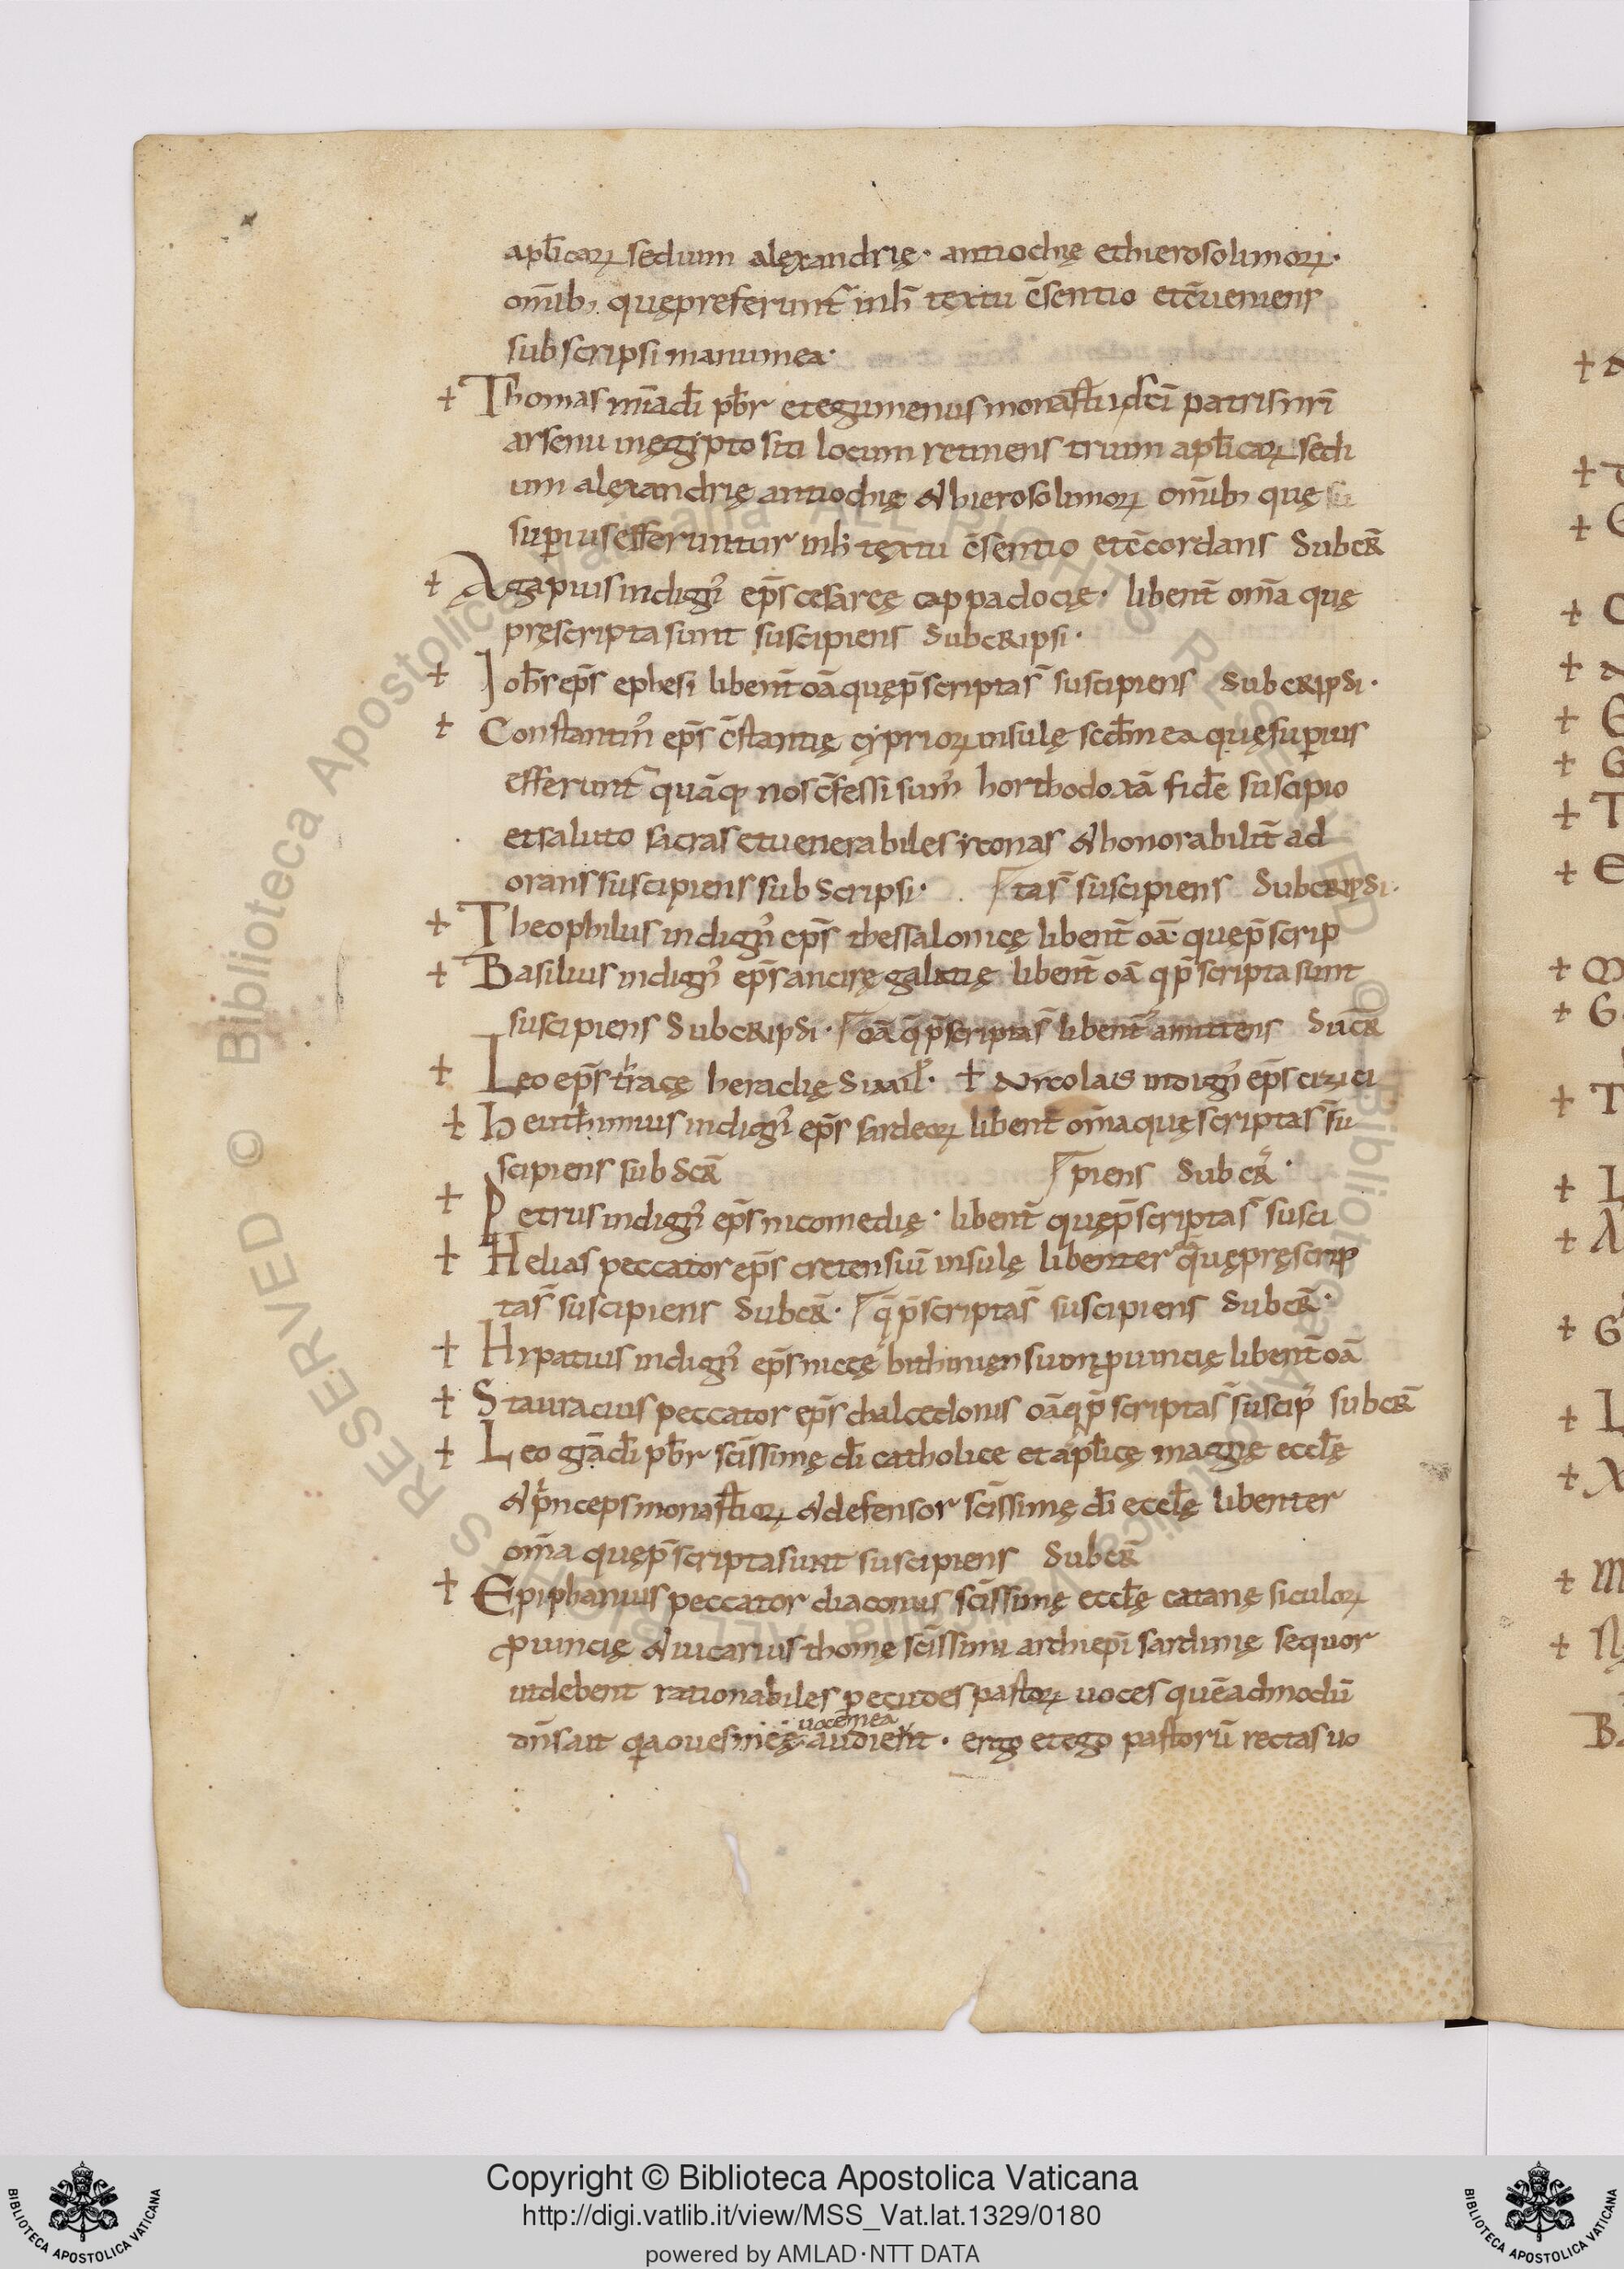 apl̄icaꝝ sedium alęxandrię· antiochię et hierosolimoꝝ·
om̄ib; quę preferunt᷑ in h̄ textu c̄sentio et c̄ueniens
subscripsi manu mea·
+ Thomas mīa dī pbr̄ et egumenus monast̄ii sc̄i patris nr̄i
arsenii in ęgypto siti locum retinens trium apl̄icaꝝ sedi
um alęxandrię antiochię & hierosolimoꝝ om̄ib; quę
superius efferuntur in h̄ textu c̄sentio et c̄cordans subcr̄
+ Agapius indign᷒ ep̄s cesaręę cappadocię· libent̄ om̄a quę
pręscripta sunt suscipiens subcripsi·
+ Ioh̄s ep̄s ephesi libent̄ oā quę p̄scripta s̄ suscipiens subcripsi·
+ Constantin᷒ ep̄s c̄stantię cypriorꝝ insulę scd̄m ea quę superius
efferunt᷑ quāq; nos c̄fessi sum᷒ horthodoxā fidē suscipio
et saluto sacras et uenerabiles yconas & honorabilit̄ ad
orans suscipiens subscripsi· ta s̄ suscipiens subcripsi·
+ Theophilus indign᷒ ep̄s thessalonicę libent̄ oā quę p̄scrip
+ Basilius indign᷒ ep̄s ancirę galatię libent̄ oā q p̄scripta sunt
suscipiens subcripsi· oā q̄ p̄scripta s̄ libent̄ amittens sucr̄
+ Leo ep̄s tracę heraclię simil̄· + Nicolaus indign᷒ ep̄s cizici
+ Heuthimius indign᷒ ep̄s sardeoꝝ libent̄ om̄a quę scripta s̄ su
scipiens subscr̄ piens subcr̄·
+ Petrus indign᷒ ep̄s nicomedię· libent̄ quę p̄scripta s̄ susci
+ Helias peccator ep̄s cretensiū insulę libenter quę pręscrip
ta s̄ suscipiens subcr̄· q̄ p̄scripta s̄ suscipiens subcr̄·
+ Hypatius indign᷒ ep̄s nicęę bithinięnsiumꝝ puincię libent̄ oā
+ Stauracius peccator ep̄s chalcedonis oā q p̄scripta s̄ suscip᷒ subcr̄
+ Leo gr̄a dī pbr̄ sc̄issimę dī catholice et apl̄icę magnę eccl̄ę
& p̄nceps monast̄ioꝝ & defensor sc̄issimę dī eccl̄ę libenter
om̄a quę p̄scripta sunt suscipiens subcr̄
+ Epiphanius peccator diaconus sc̄issimę eccl̄ę catanę siculoꝝ
ꝓuincię & uicarius thomę sc̄issimi archiep̄i sardinię sequor
ut debent rationabiles pecudes pastoꝝ uoces quēadmodū
uocē mea
dn̄s ait qa oues męę audient· ergo et ego pastorū rectas uo
Copyright © Biblioteca Apostolica Vaticana
http://digi.vatlib.it/view/MSS_Vat.lat.1329/0180
powered by AMLAD·NTT DATA